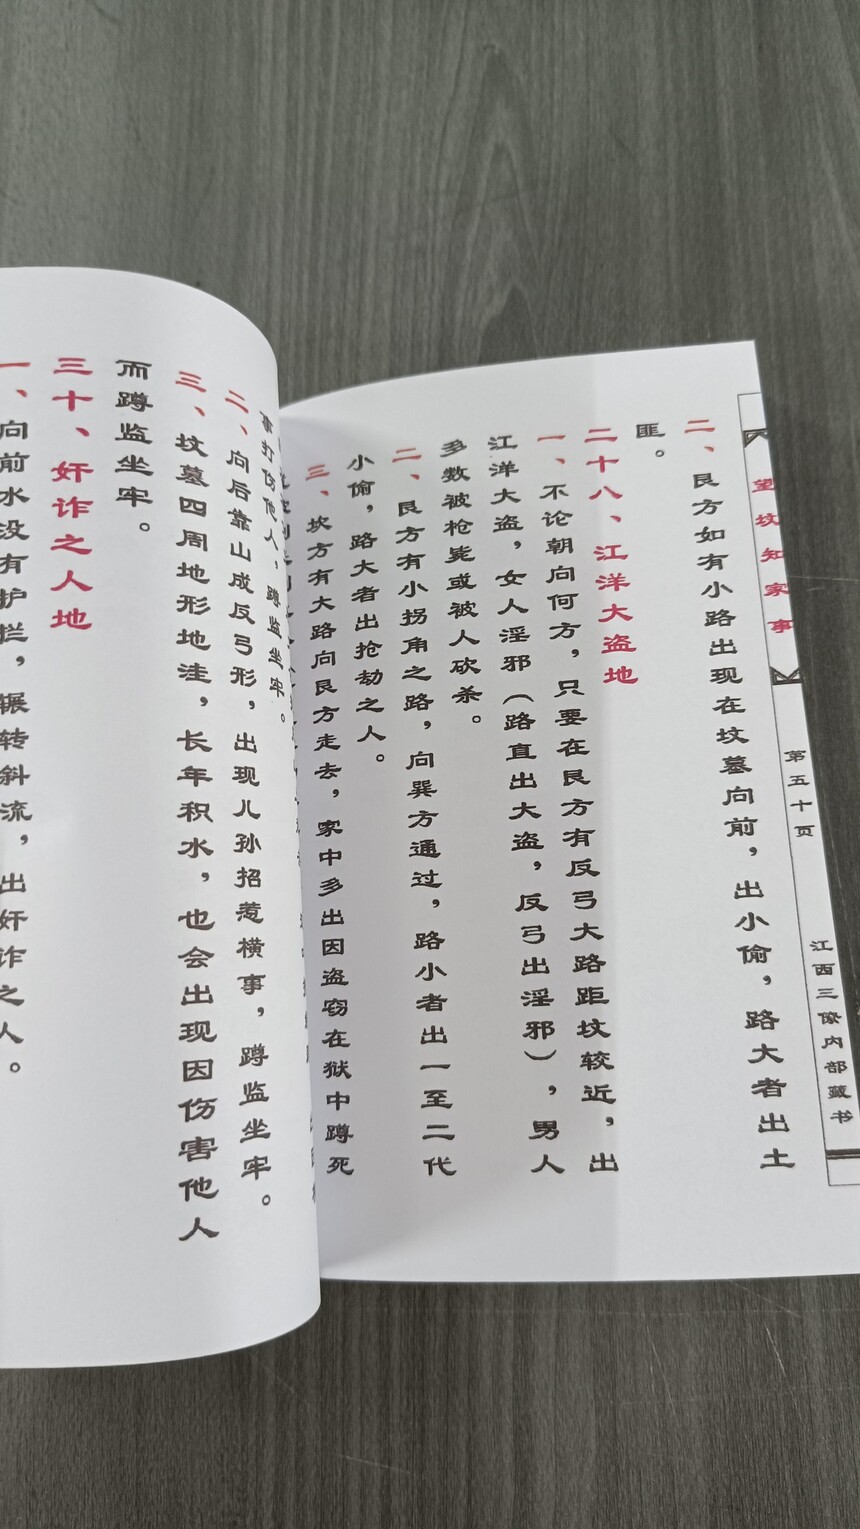 望坟知家事
第五十页
江西三僚内部藏书
二、艮方如有小路出现在坟墓向前，出小偷，路大者出土
匪。
二十八、江洋大盗地
一、不论朝向何方，只要在艮方有反弓大路距坟较近，出
江洋大盗，女人淫邪（路直出大盗，反弓出淫邪），男人
多数被枪毙或被人砍杀。
二、艮方有小拐角之路，向巽方通过，路小者出一至二代
小偷，路大者出抢劫之人。
三、坎方有大路向艮方走去，家中多出因盗窃在狱中蹲死
事打伤他人，蹲监坐牢。
二、向后靠山成反弓形，出现儿孙招惹横事，蹲监坐牢。
三、坟墓四周地形地洼，长年积水，也会出现因伤害他人
而蹲监坐牢。
三十、奸诈之人地
一、向前水没有护拦，辗转斜流，出奸诈之人。